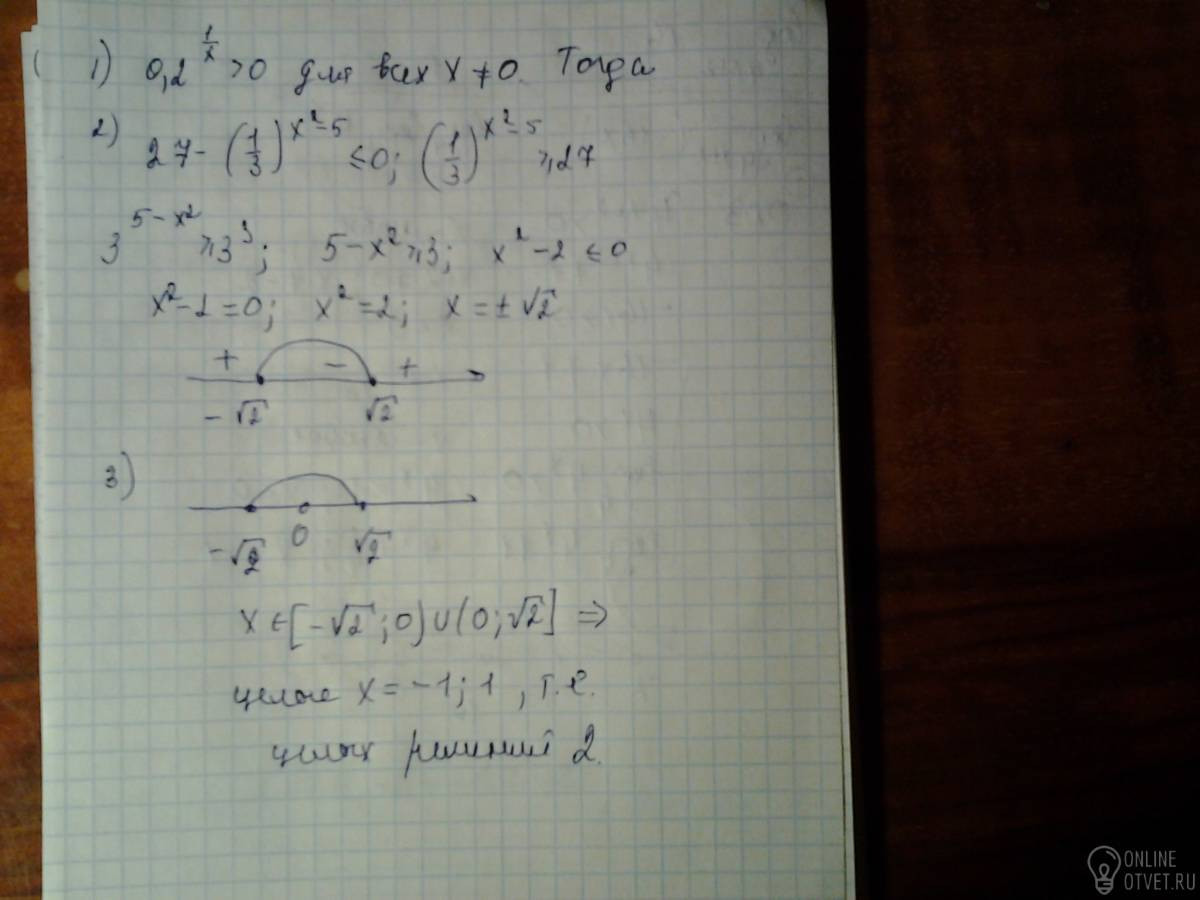 1) 0,2^(1/x) > 0 для всех x ≠ 0. Тогда
2) 27 - (1/3)^(x²-5) ≤ 0; (1/3)^(x²-5) ≥ 27
3^(5-x²) ≥ 3³; 5-x² ≥ 3; x²-2 ≤ 0
x²-2=0; x²=2; x=±√2
+ - +
-√2 √2
3)
-√2 0 √2
x ∈ [-√2; 0) ∪ (0; √2] ⇒
целые x = -1; 1, т.е.
целых решений 2.
ONLINE
OTVET.RU